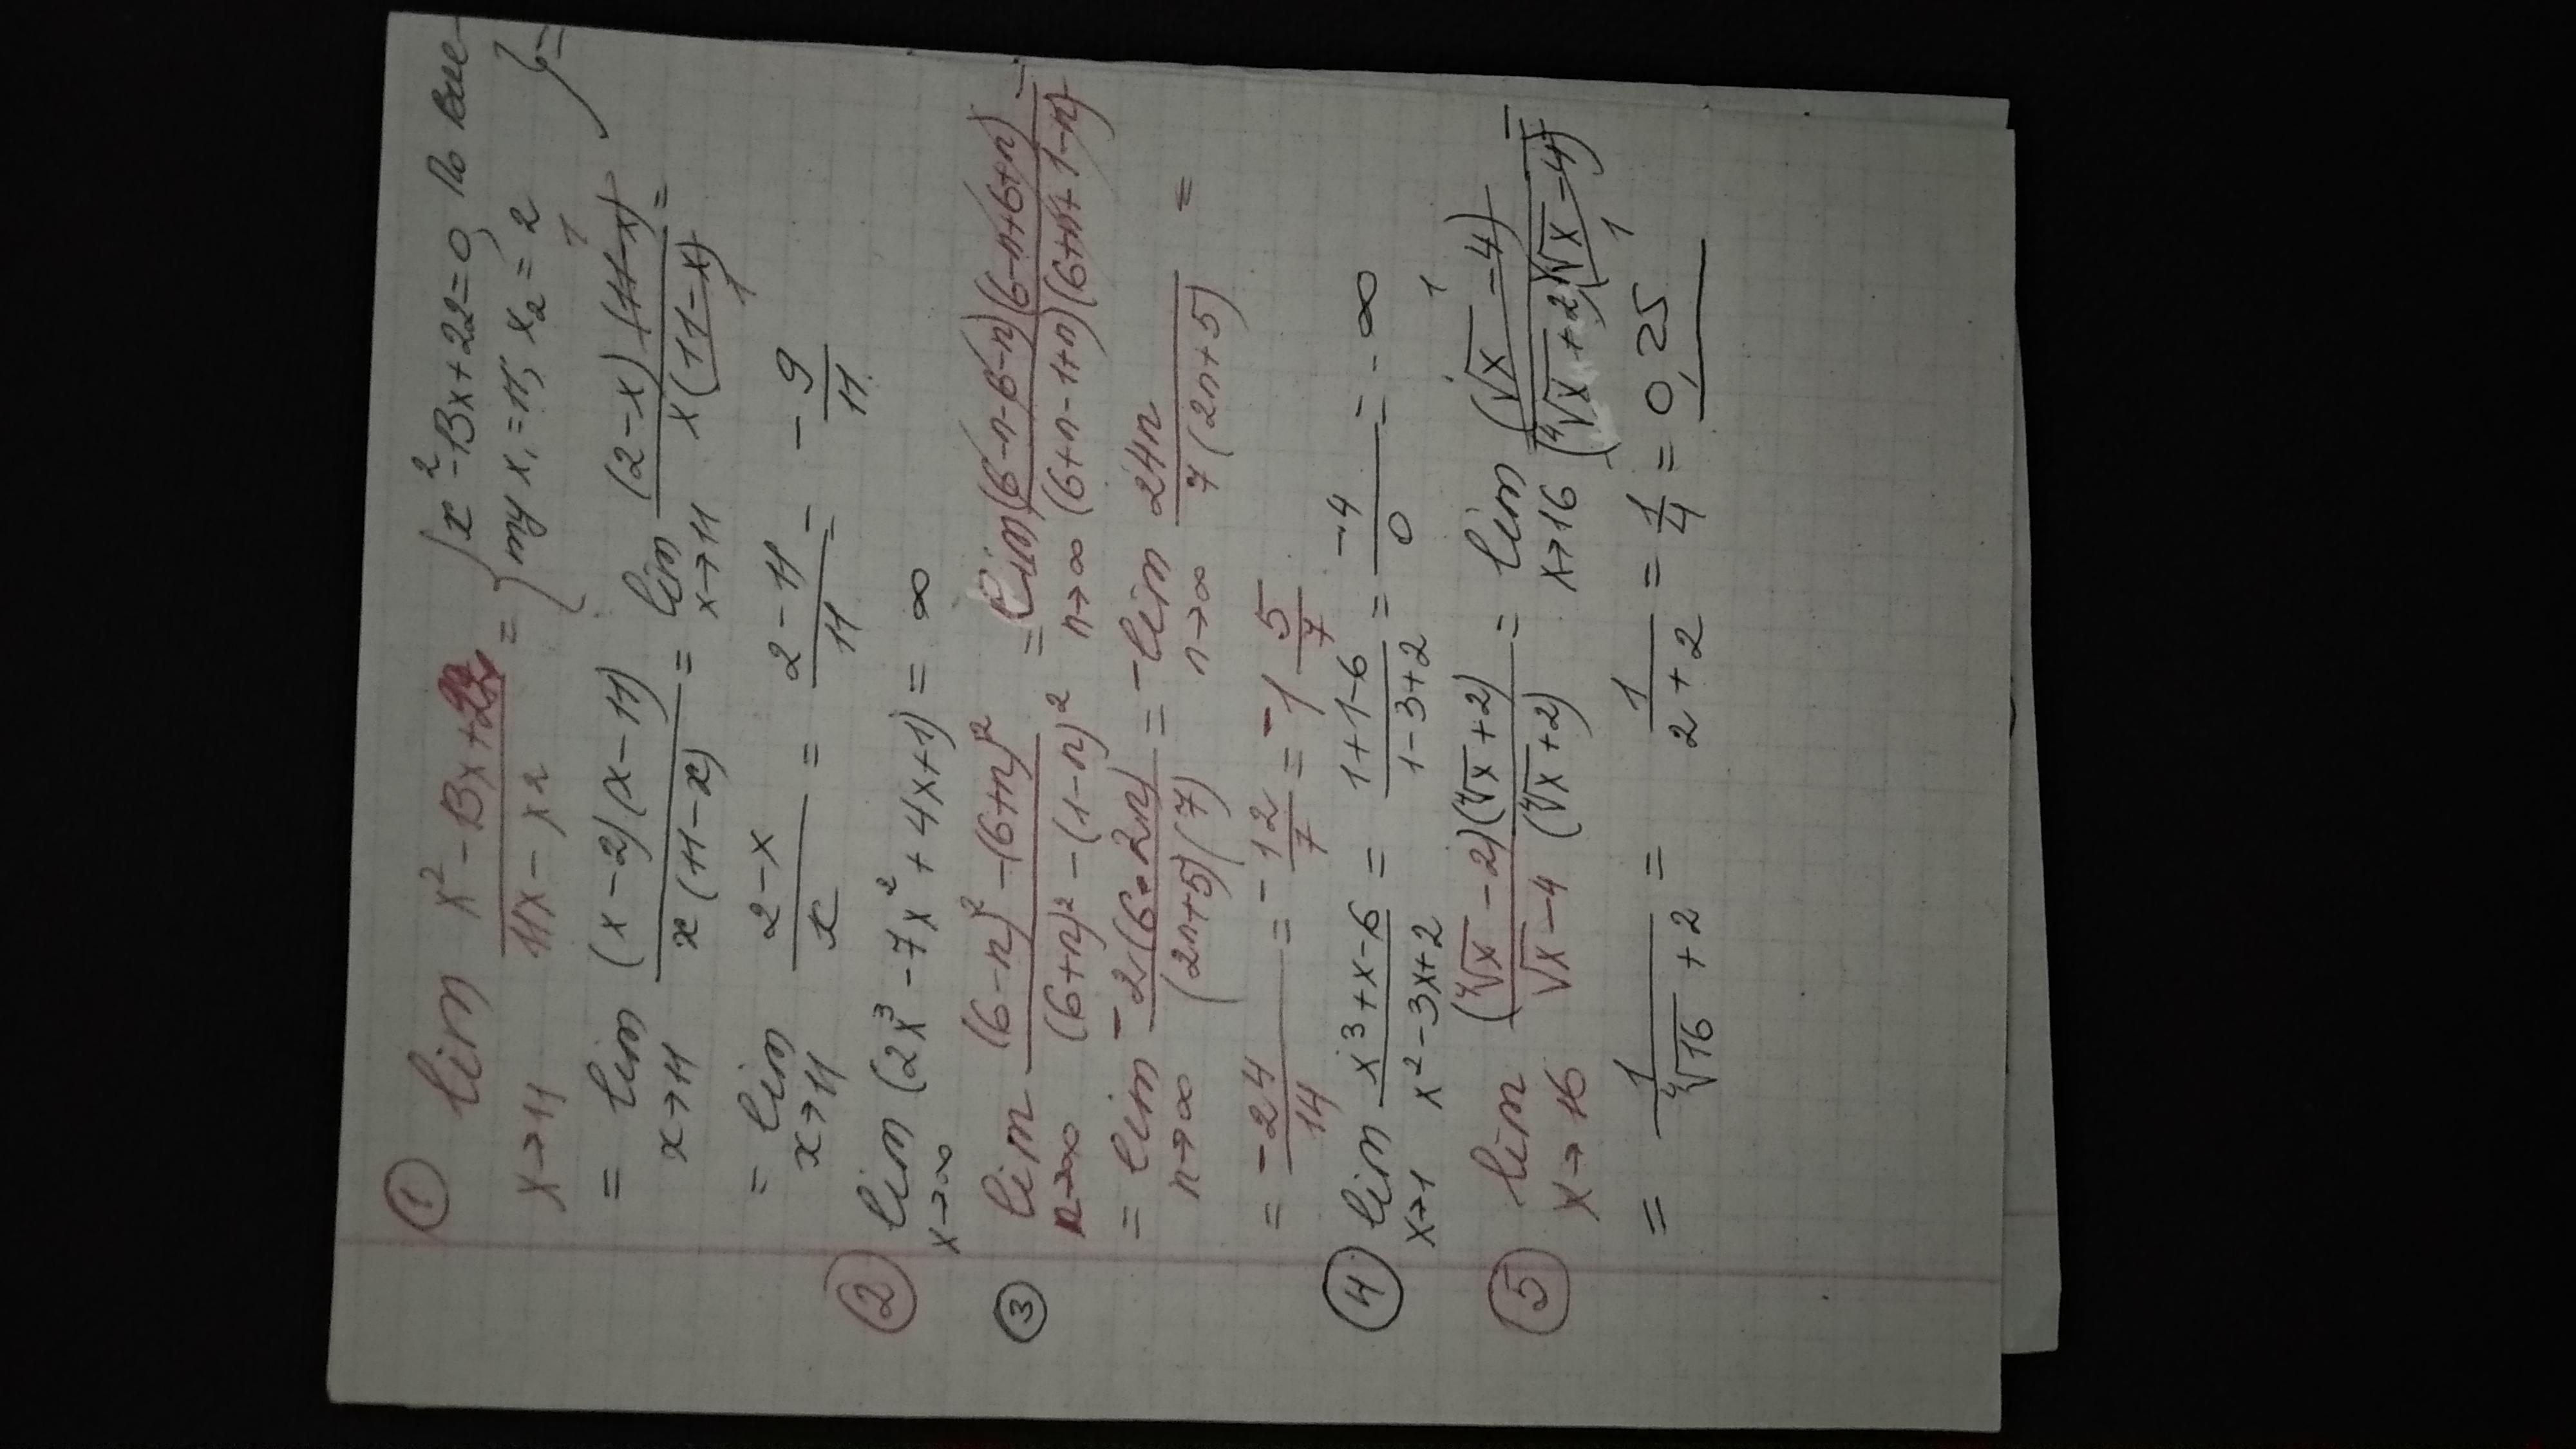 ① lim x→11 (x² - 13x + 22)/(11x - x²) = { x² - 13x + 22 = 0, по Вие-
ту x₁ = 11, x₂ = 2 } =
= lim x→11 (x-2)(x-11)/(x(11-x)) = lim x→11 (2-x)(11-x)/(x(11-x)) =
= lim x→11 (2-x)/x = (2-11)/11 = - 9/11
② lim x→∞ (2x³ - 7x² + 4x + 1) = ∞
③ lim n→∞ ((6-n)² - (6+n)²)/((6+n)² - (1-n)²) = lim n→∞ (6-n-6-n)(6-n+6+n)/((6+n-1+n)(6+n+1-n)) =
= lim n→∞ -2(6·2n)/((2n+5)(7)) = - lim n→∞ 24n/(7(2n+5)) =
= -24/14 = - 12/7 = -1 5/7
④ lim x→1 (x³ + x - 6)/(x² - 3x + 2) = (1+1-6)/(1-3+2) = -4/0 = - ∞
⑤ lim x→16 (⁴√x - 2)(⁴√x + 2)/(√x - 4 (⁴√x + 2)) = lim x→16 (√x - 4)/((⁴√x + 2)(√x - 4)) =
= 1/(⁴√16 + 2) = 1/(2+2) = 1/4 = 0,25